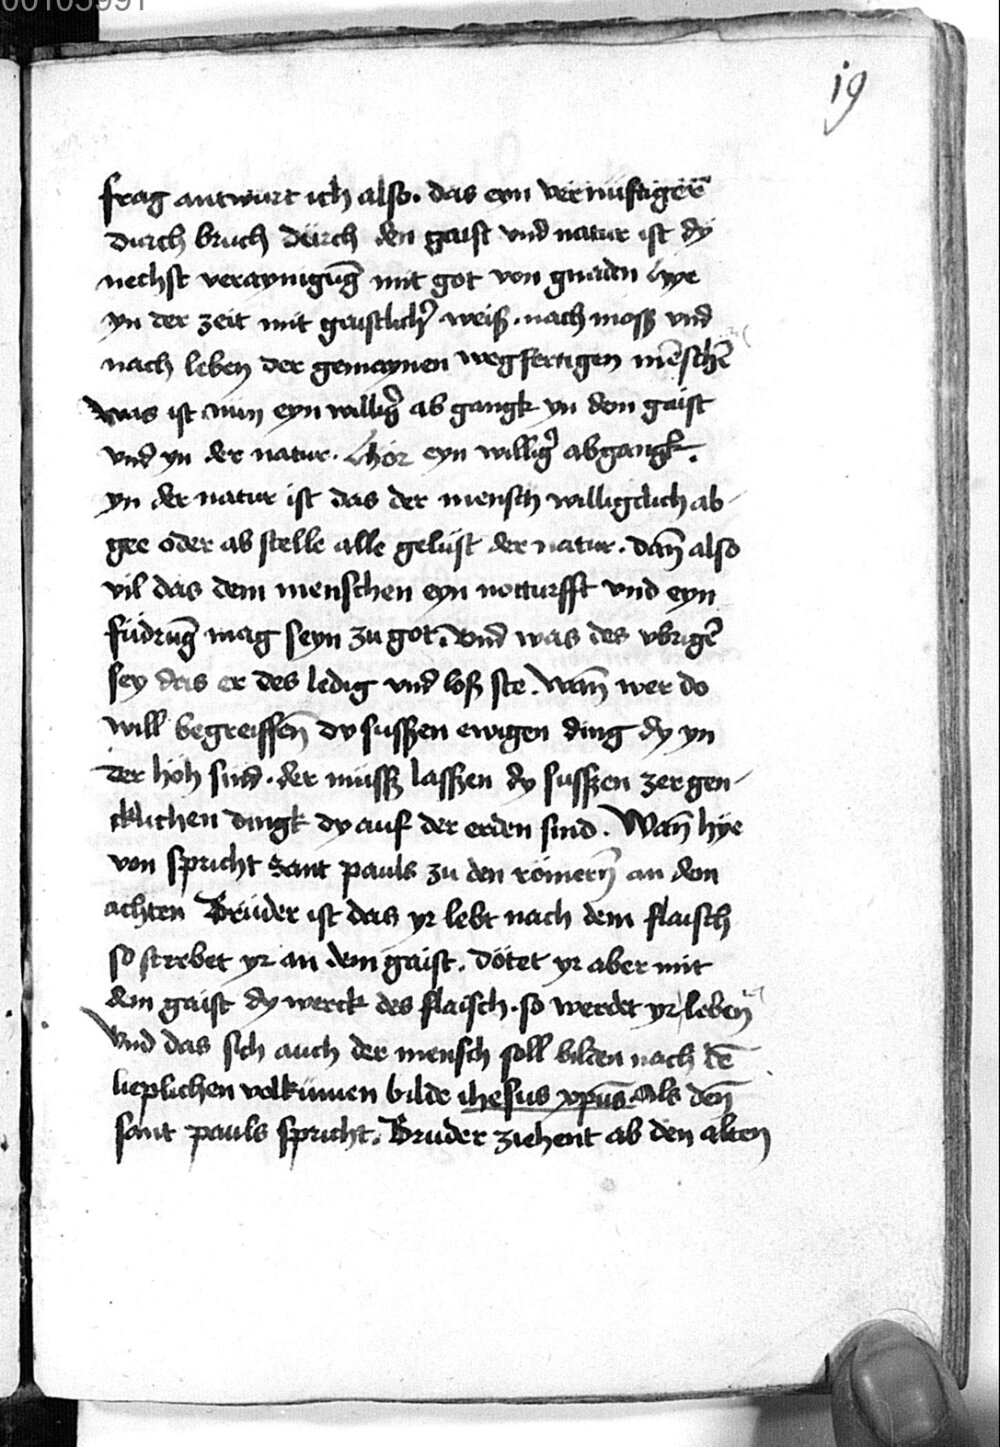 00103991
19
frag antwurt ich also. das eyn vernüftiger
durch bruch durch den gaist vnd natur ist dy
nechst veraynigūg mit got von gnaden hye
yn der zeit mit gaistlicher weiß. nach moß vnd
nach leben der gemaynen wegfertigen mēschē
was ist nun eyn willig' ab gangk yn dem gaist
vnd yn der natur. hör eyn willig' abgangk.
yn der natur ist das der mensch willigclich ab-
gee oder ab stelle alle gelüst der natur. dañ also
vil das dem menschen eyn notturfft vnd eyn
füdrūg mag seyn zu got. vnd was des vbrigē
sey das er des ledig vnd loß ste. wañ wer do
will begreiffen dy sussen ewigen ding dy yn
der höh sind. der müß lassen dy sussen zergen-
cklichen dingk dy auf der erden sind. Wañ hye
von spricht sant pauls zu den römern an dem
achten Brüder ist das yr lebt nach dem flaisch
so sterbet yr an dem gaist. dötet yr aber mit
dem gaist dy werck des flaisch. so werdet yr leben
vnd das sich auch der mensch soll bilden nach dē
lieplichen volkumen bilde ihesus xpūs. Als deñ
sant pauls spricht. Bruder ziehent ab den alten